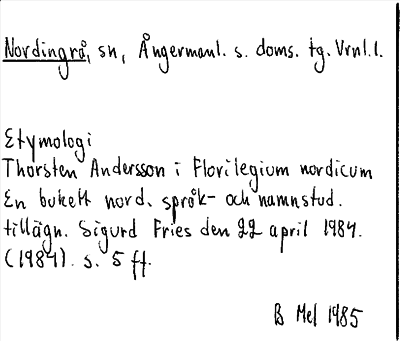 Nordingrå, sn, Ångermanl. s. doms. tg. Vrnl. l.
Etymologi
Thorsten Andersson i Florilegium nordicum
En bukett nord. språk- och namnstud.
tillägn. Sigurd Fries den 22 april 1984.
(1984). s. 5 ff.
B Mel 1985